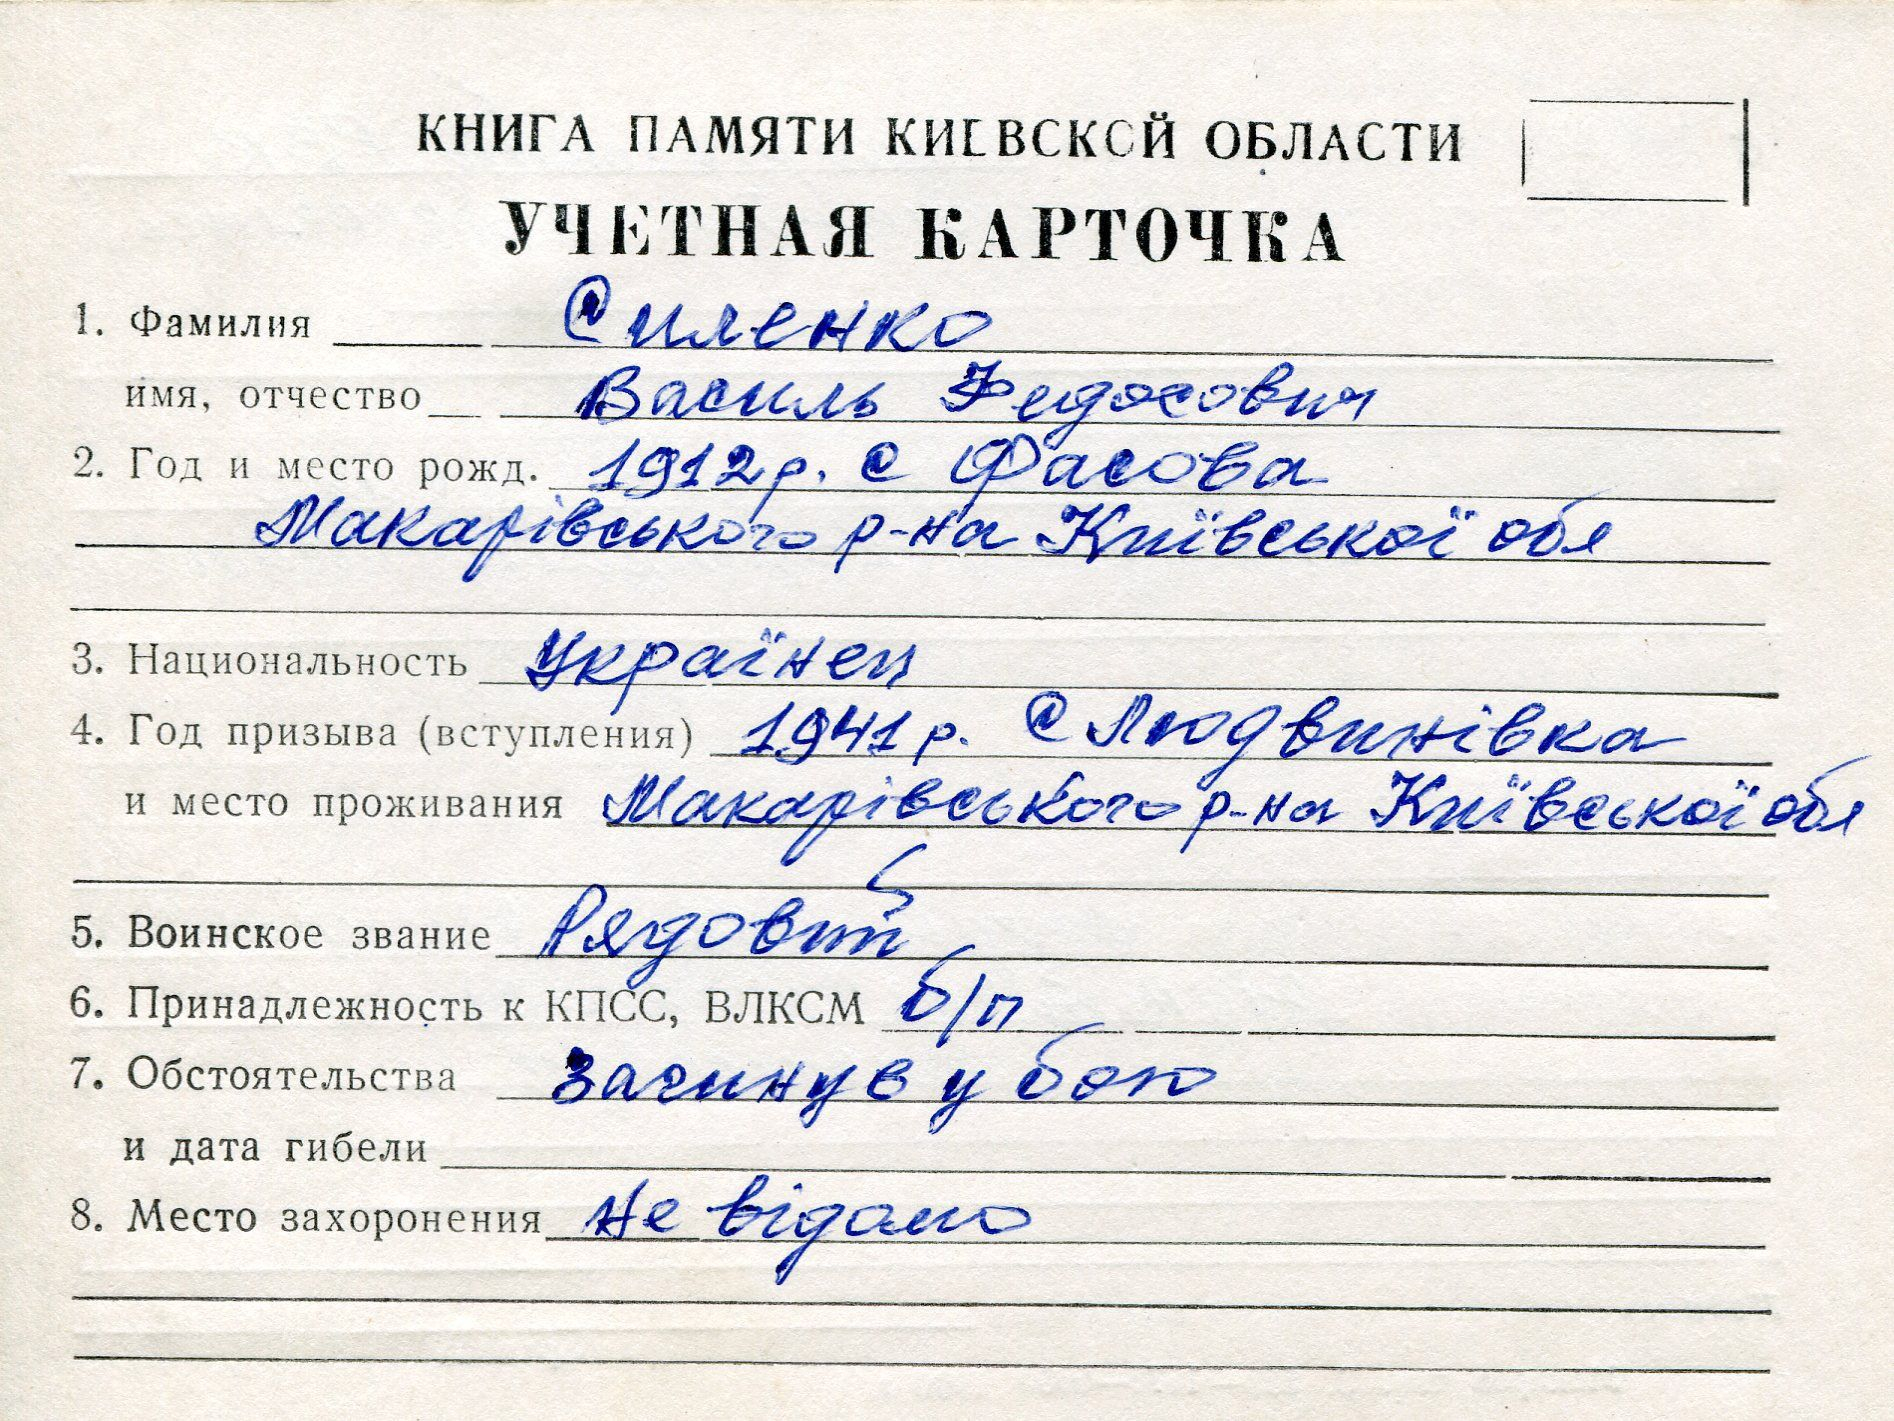 КНИГА ПАМЯТИ КИЕВСКОЙ ОБЛАСТИ
УЧЕТНАЯ КАРТОЧКА
1. Фамилия Силенко
имя, отчество Василь Федосович
2. Год и место рожд. 1912 р. с Фасова
Макарівського р-на Київської обл
3. Национальность Українец
4. Год призыва (вступления) 1941 р. с Людвинівка
и место проживания Макарівського р-на Київської обл
5. Воинское звание Рядовий
6. Принадлежность к КПСС, ВЛКСМ б/п
7. Обстоятельства Загинув у бою
и дата гибели
8. Место захоронения Не відомо